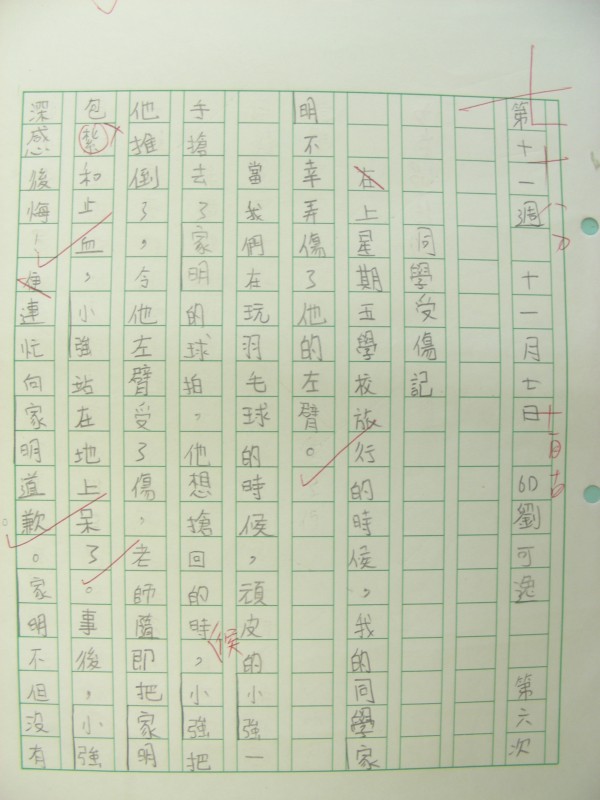 第十一週 十一月七日 6D劉可逸 第六次
同學受傷記
在上星期五學校旅行的時侯，我的同學家
明不幸弄傷了他的左臂。
當我們在玩羽毛球的時候，頑皮的小強一
手搶去了家明的球拍，他想搶回的時，小強把
候
他推倒了，令他左臂受了傷，老師隨即把家明
包紮和止血，小強站在地上呆了。事後，小強
深感後悔，便連忙向家明道歉。家明不但沒有